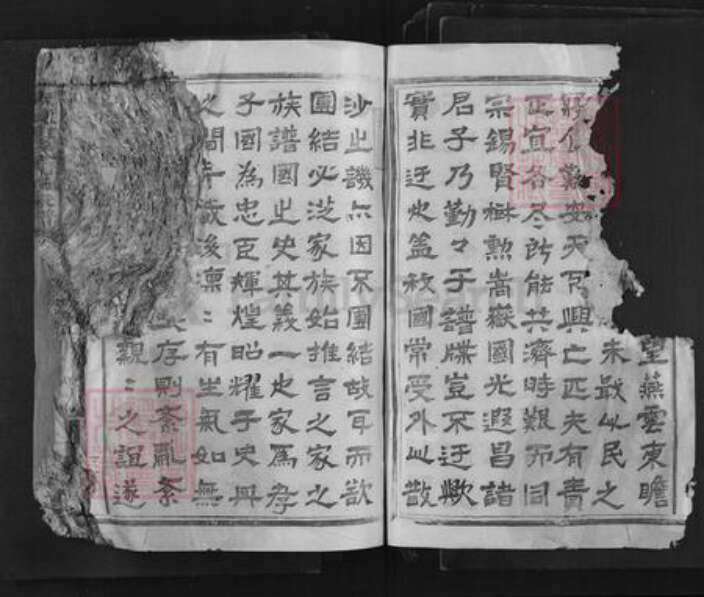 望燕雲東瞻
未戢以民之
安天下興亡匹夫有責
正宜各尽所能共濟時艱而同
宗錫賢樹勲嵩嶽國光遐昌諸
君子乃勤々于譜牒豈不迂歟
實非迂也盖我國常受外此散
沙之譏亦因不團結故耳而欲
團結必從家族始推言之家之
族譜國之史其義一也家爲孝
子國為忠臣輝煌昭耀于史冊
之間千歲後凛〻有生氣如無
存則紊亂紊
觀〻之誼遂